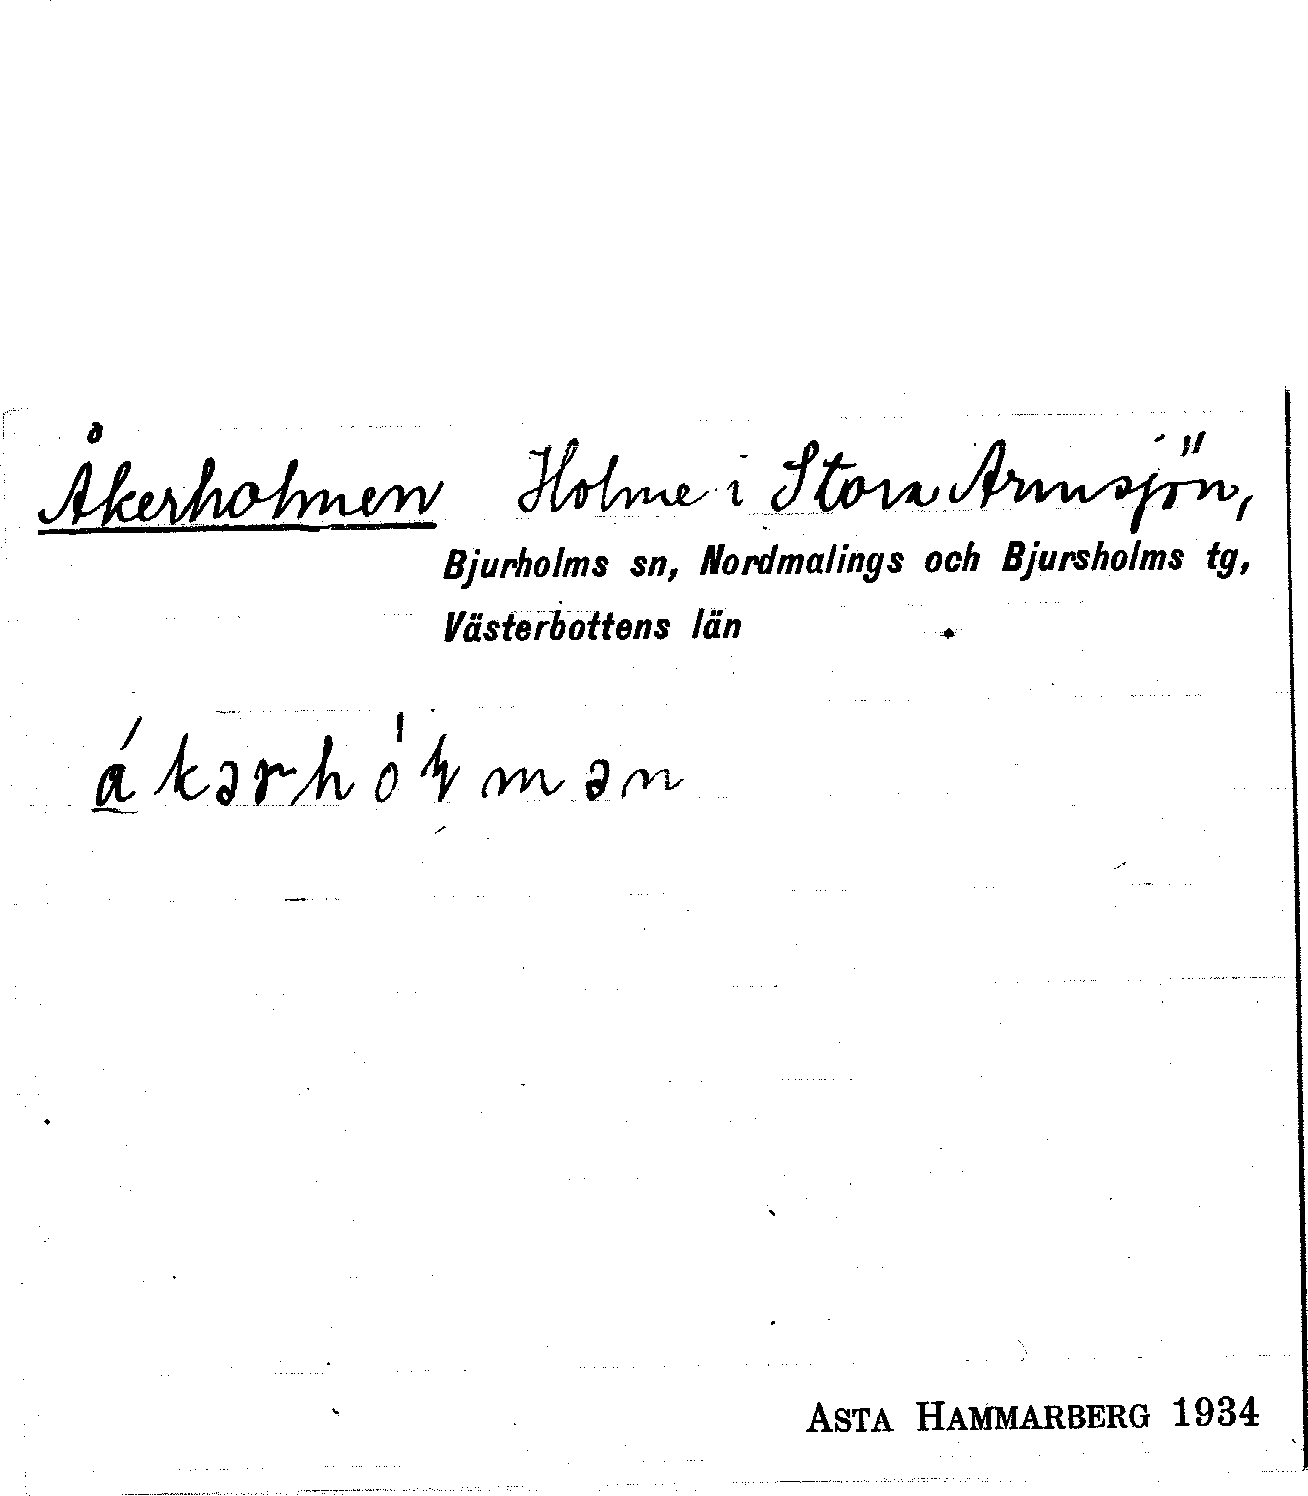 Åkerholmen Holme i Stora Armsjön,
Bjurholms sn, Nordmalings och Bjursholms tg,
Västerbottens län
ákərhóɫmən
ASTA HAMMARBERG 1934